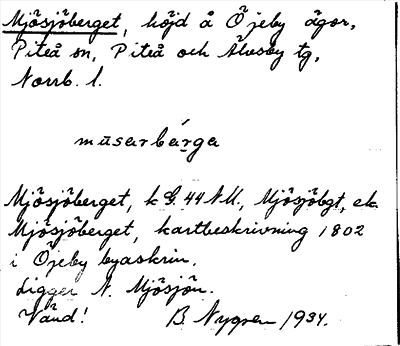 Mjösjöberget, höjd å Öjeby ägor,
Piteå sn, Piteå och Älvsby tg,
Norrb. l.
mūsarbárga
Mjösjöberget, k G. 44 NU., Mjösjöbgt, ek
Mjösjöberget, kartbeskrivning 1802
i Öjeby byaskrin.
Ligger N. Mjösjön.
Vänd! B Nygren 1934.